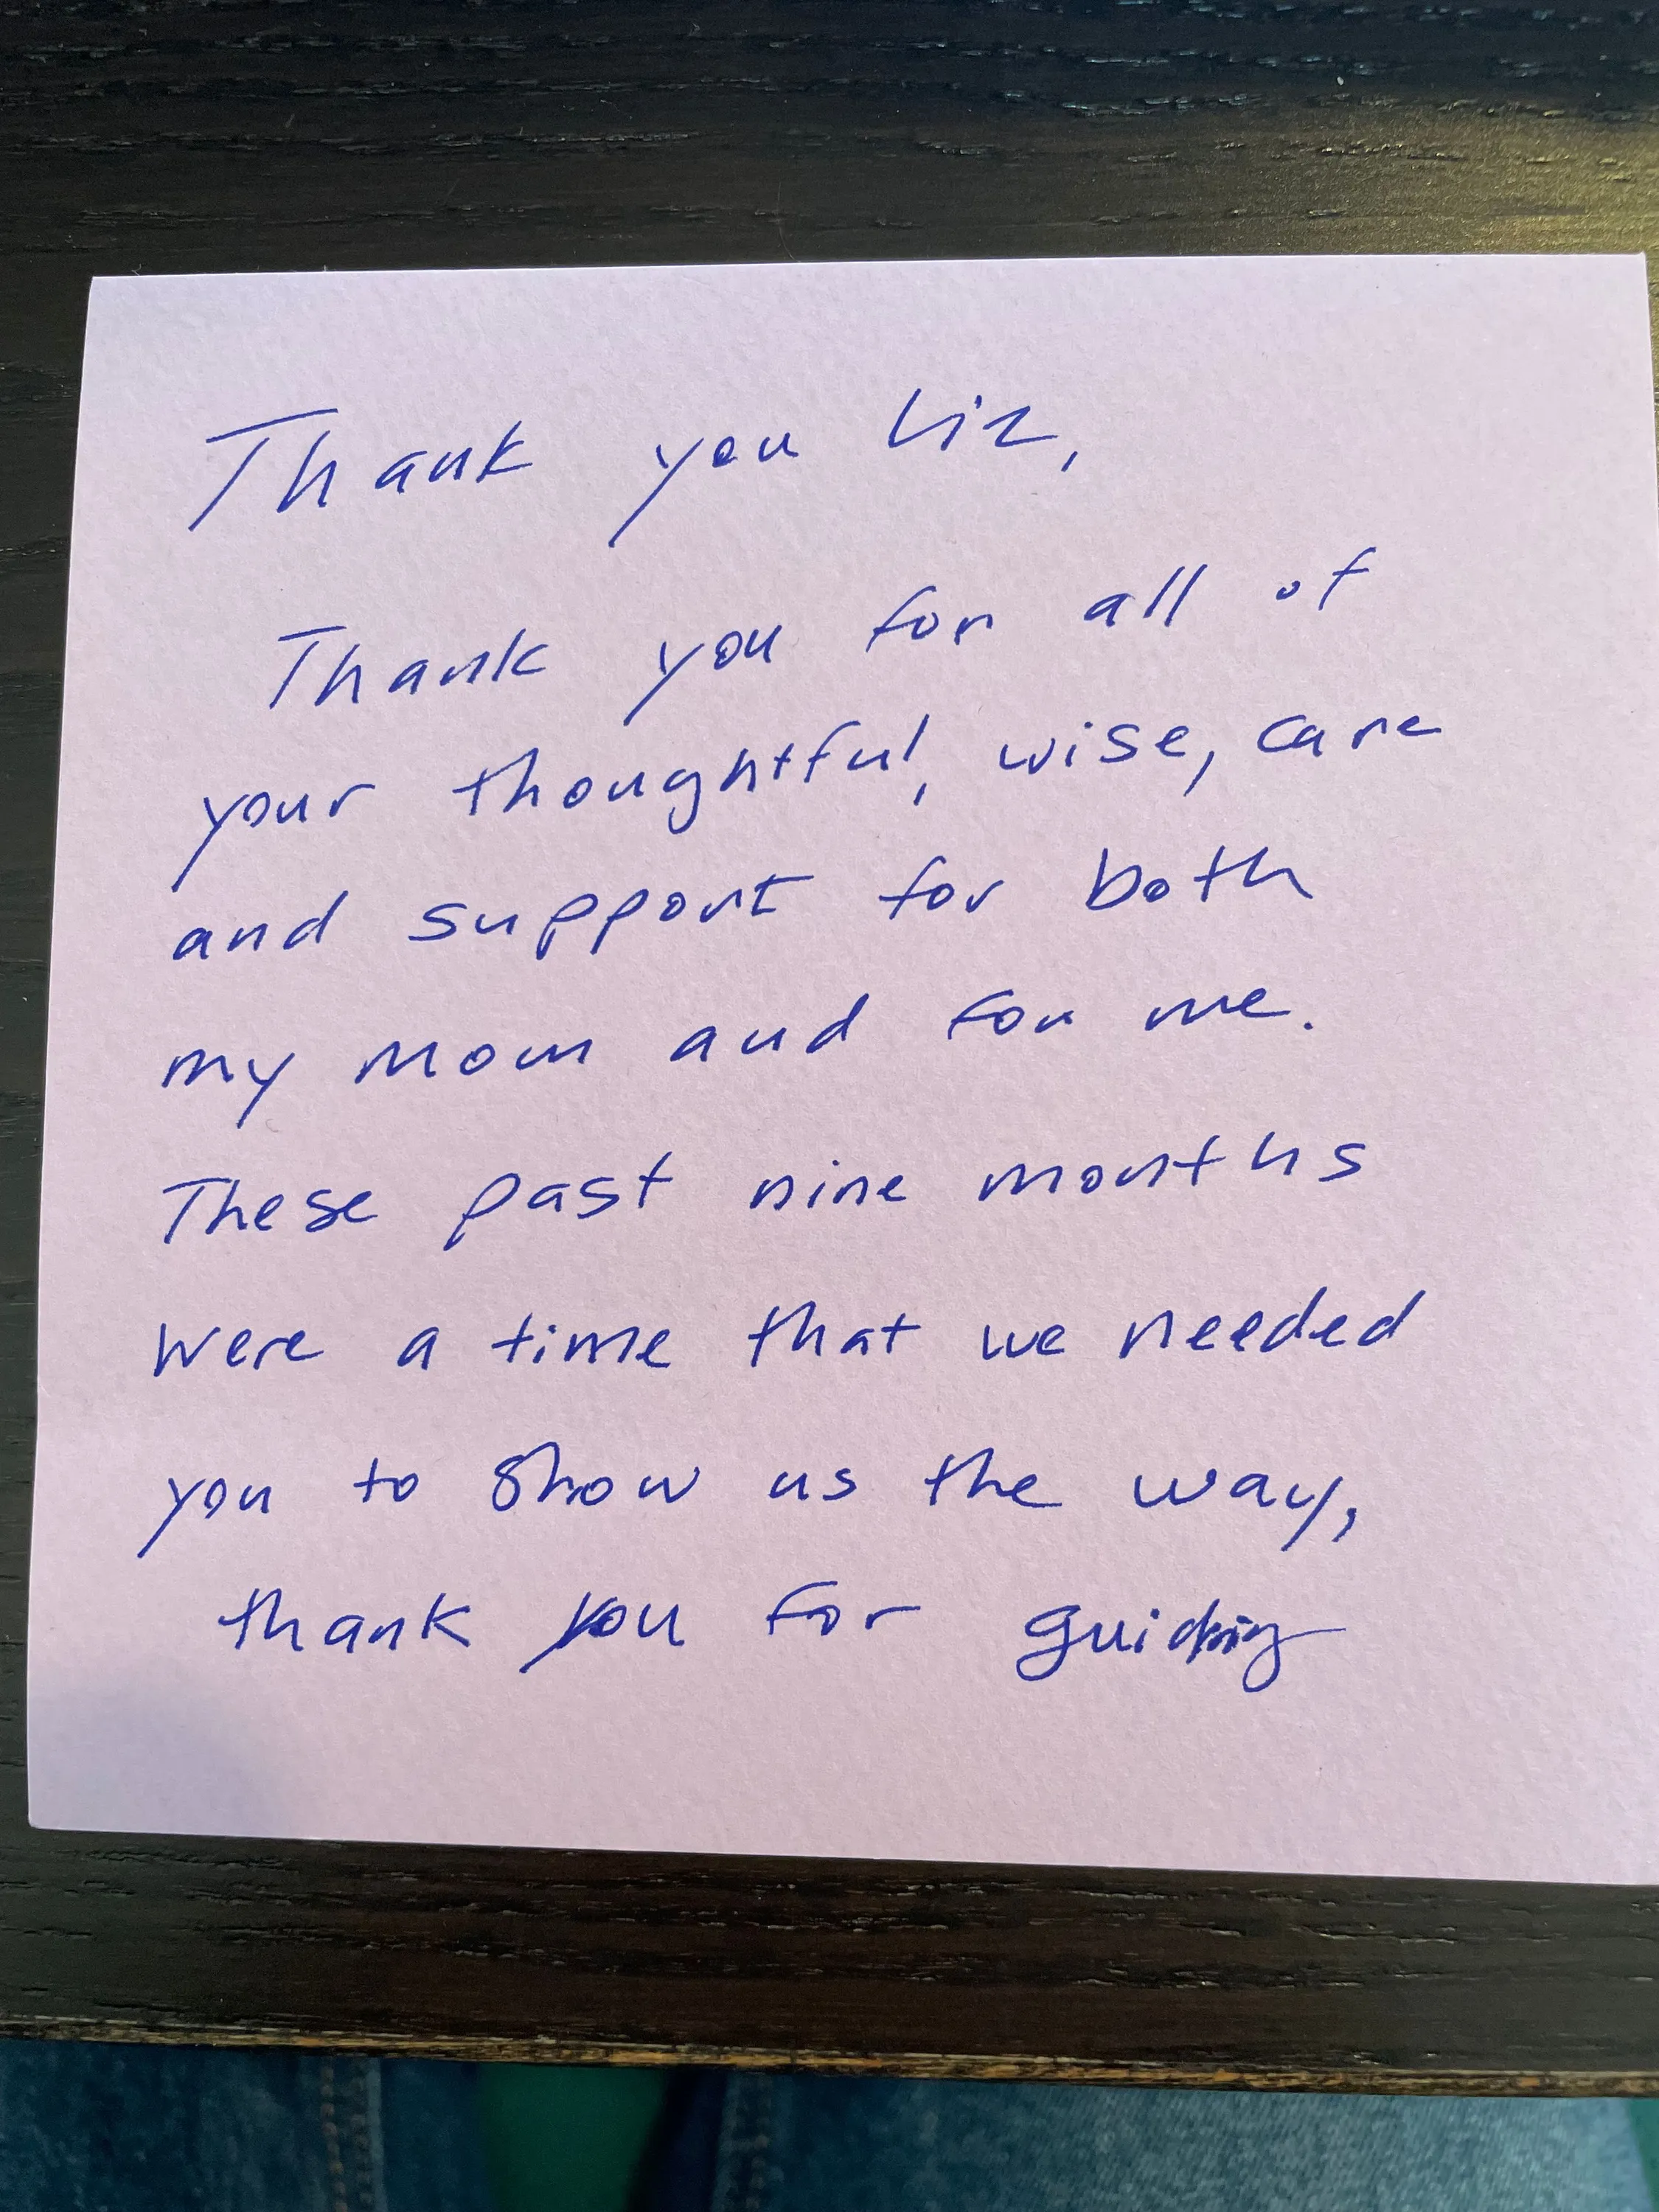 Thank you Liz,
Thank you for all of
your thoughtful, wise, care
and support for both
my Mom and for me.
These past nine months
were a time that we needed
you to show us the way,
thank you for guiding